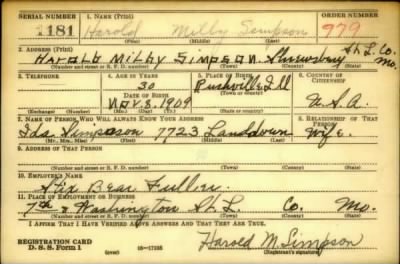 SERIAL NUMBER 1. NAME (Print) ORDER NUMBER
1181 Harold Milby Simpson 979
(First) (Middle) (Last)
2. ADDRESS (Print)
HAROLD MILBY SIMPSON Shrewsbury St. L. Co. Mo.
(Number and street or R. F. D. number) (Town) (County) (State)
3. TELEPHONE 4. AGE IN YEARS 5. PLACE OF BIRTH 6. COUNTRY OF CITIZENSHIP
30 Rushville Ill
DATE OF BIRTH
Nov. 8. 1909 U.S.A.
(Exchange) (Number) (Mo.) (Day) (Yr.) (Town) (State or country)
7. NAME OF PERSON WHO WILL ALWAYS KNOW YOUR ADDRESS 8. RELATIONSHIP OF THAT PERSON
Ida Simpson 7723 Lansdown Wife.
(Mr., Mrs., Miss) (First) (Middle) (Last)
9. ADDRESS OF THAT PERSON
(Number and street or R. F. D. number) (Town) (County) (State)
10. EMPLOYER'S NAME
Stix Bear Fuller
11. PLACE OF EMPLOYMENT OR BUSINESS
7th & Washington St. L. Co. Mo.
(Number and street or R. F. D. number) (Town) (County) (State)
I AFFIRM THAT I HAVE VERIFIED ABOVE ANSWERS AND THAT THEY ARE TRUE.
REGISTRATION CARD
D. S. S. Form 1 (over) 16-17105 Harold M. Simpson
(Registrant's signature)